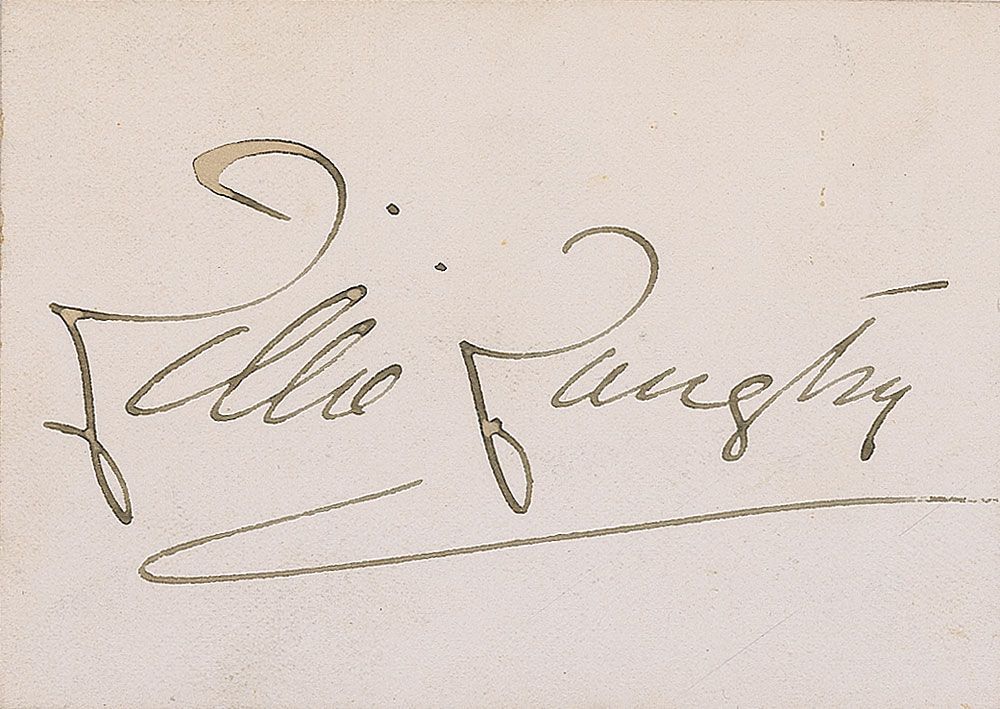 Lillie Langtry